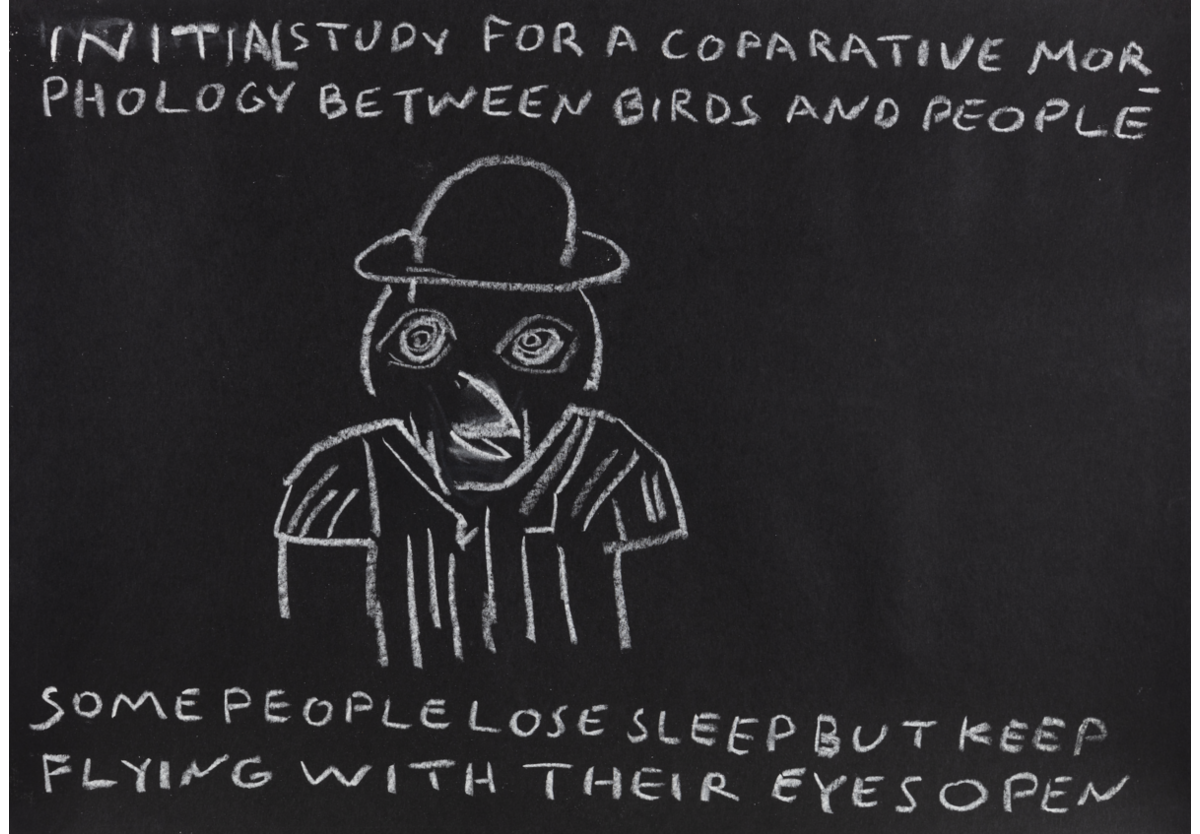 INITIAL STUDY FOR A COPARATIVE MOR
PHOLOGY BETWEEN BIRDS AND PEOPLE
SOME PEOPLE LOSE SLEEP BUT KEEP
FLYING WITH THEIR EYES OPEN